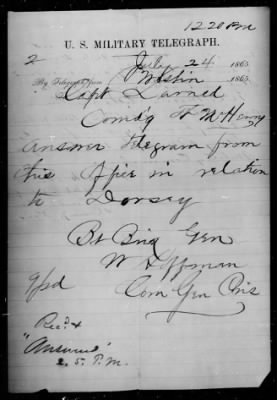 12 20 Pm
U. S. MILITARY TELEGRAPH.
2
July 24 1865
By Telegraph from Washn 1865
Capt Larned
Comd'g Ft McHenry
Answer telegram from
this Office in relation
to Dorsey
Bt Brig Gen
W Hoffman
Com Gen Pris
Rec'd &
"Answered"
2. 5. P.M.